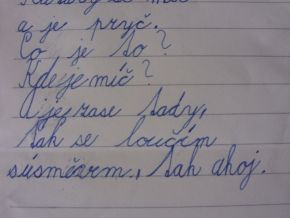 a je pryč.
Co je to?
Kde je míč?
A je zase tady,
tak se loučím
súsměvem, tak ahoj.